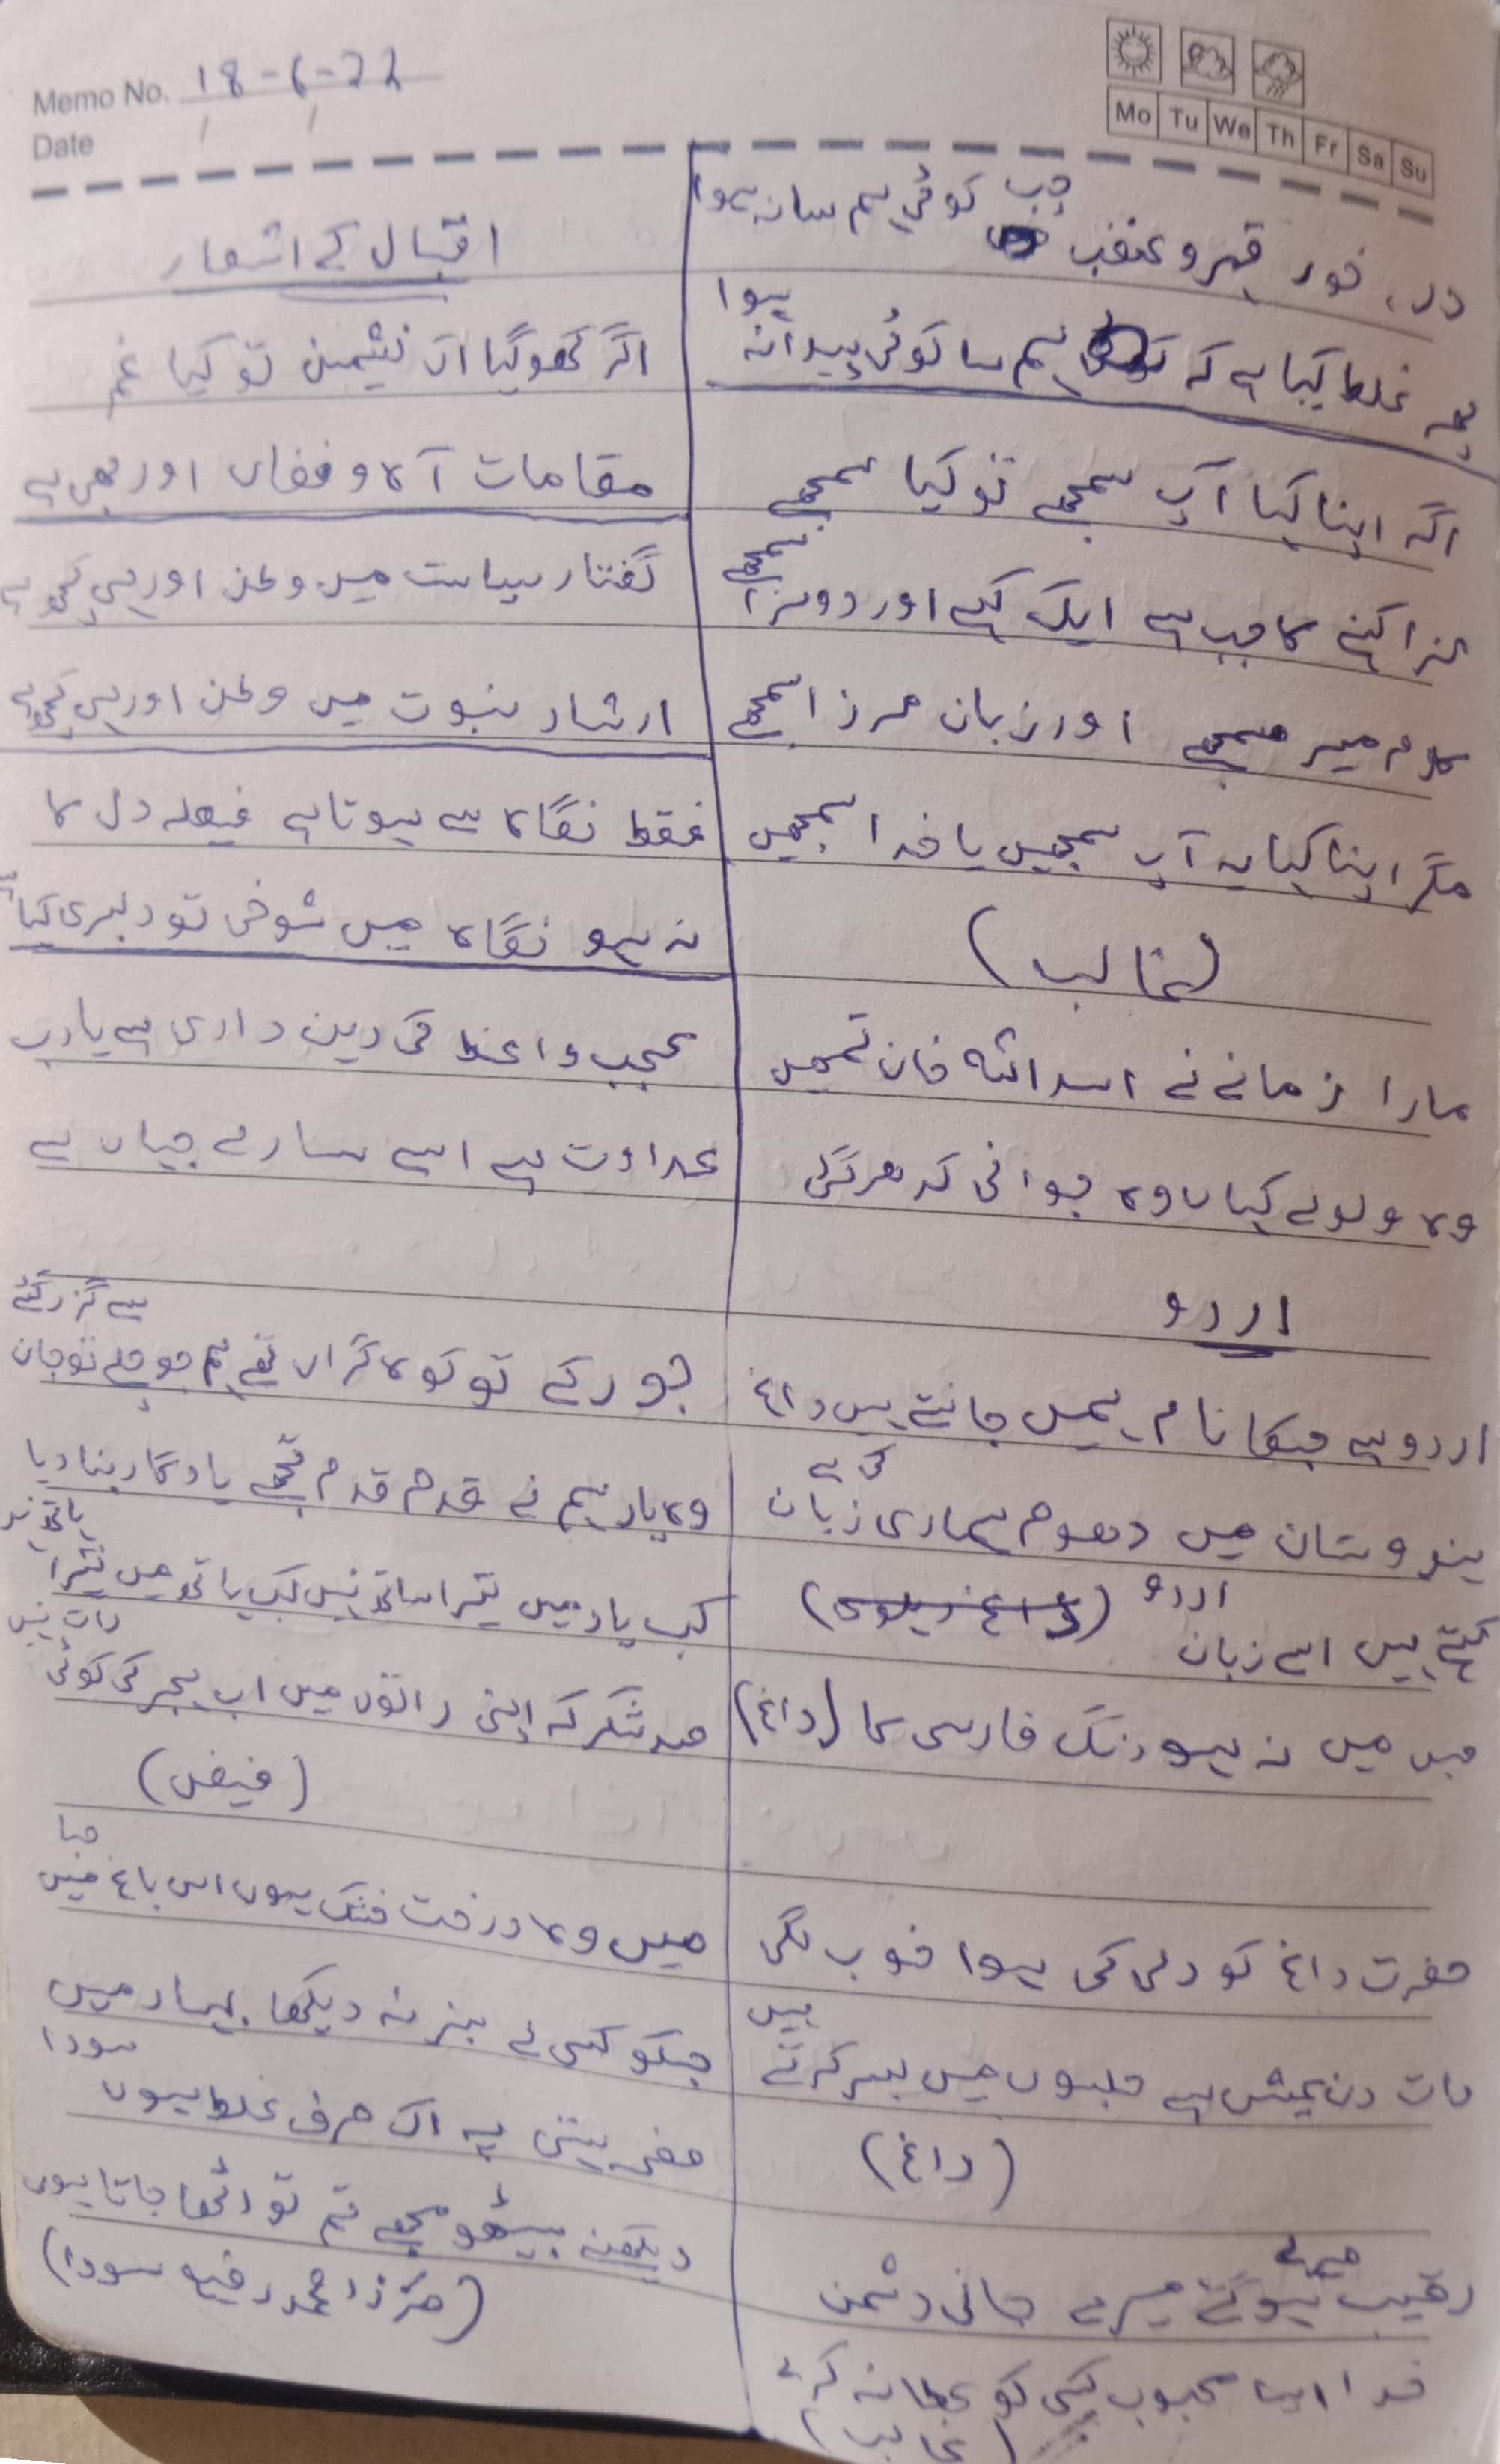 Memo No. 18-6-22
Date
Mo Tu We Th Fr Sa Su
در، خور قہر و غضب جب کوئی ہم سا نہ ہوا
پھر غلط کیا ہے کہ ہم سا کوئی پیدا نہ ہوا
اگر اپنا کہا آپ سمجھے تو کیا سمجھے
مزا کہنے کا جب ہے ایک کہے اور دوسرا سمجھے
کلام میر سمجھے اور زبان مرزا سمجھے
مگر اپنا کہا یہ آپ سمجھیں یا خدا سمجھیں
(غالب)
مارا زمانے نے اسداللہ خان تمہیں
وہ ولولے کہاں وہ جوانی کدھر گئی
اردو
اردو ہے جسکا نام ہمیں جانتے ہیں داغ
ہندوستان میں دھوم ہماری زبان کی ہے
کہتے ہیں اسے زبان اردو (داغ دہلوی)
جس میں نہ ہو رنگ فارسی کا (داغ)
حضرت داغ کو دلی کی ہوا خوب لگی
رات دن عیش ہے جلسوں میں بسر کرتے ہیں
(داغ)
رقیب ہوگئے میرے جانی دشمن
خدا ایسا محبوب کسی کو عطا نہ کرے
(غالب)
اقبال کے اشعار
اگر کھو گیا اک نشیمن تو کیا غم
مقامات آہ و فغاں اور بھی ہے
گفتار سیاست میں وطن اور ہی کچھ ہے
ارشاد نبوت میں وطن اور ہی کچھ ہے
فقط نگاہ سے ہوتا ہے فیصلہ دل کا
نہ ہو نگاہ میں شوخی تو دلبری کیا ہے
عجب واعظ کی دین داری ہے یارب
عداوت ہے اسے سارے جہاں سے
جو رکے تو کوہ گراں تھے ہم جو چلے تو جان سے گزر گئے
وہ یار ہم نے قدم قدم تجھے یادگار بنا دیا
کب یاد میں تیرا ساتھ نہیں کب ہاتھ میں تیرا ہاتھ نہیں
صد شکر کہ اپنی راتوں میں اب ہجر کی کوئی رات نہیں
(فیض)
میں وہ درخت خشک ہوں اس باغ میں صبا
جسکو کسی نے سبز نہ دیکھا بہار میں
سودا
صفحہ ہستی پہ اک حرف غلط ہوں
دیکھنے بیٹھو مجھے تم تو اٹھا جاتا ہوں
(مرزا محمد رفیع سودا)